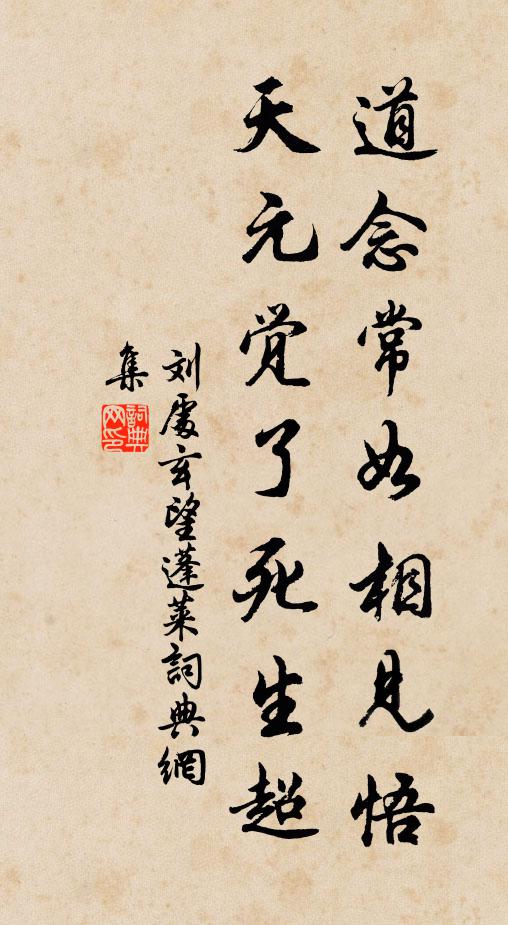 道念常如相見悟
天元觉了死生超
刘處玄望蓬莱詞典網
集
詞典
网印